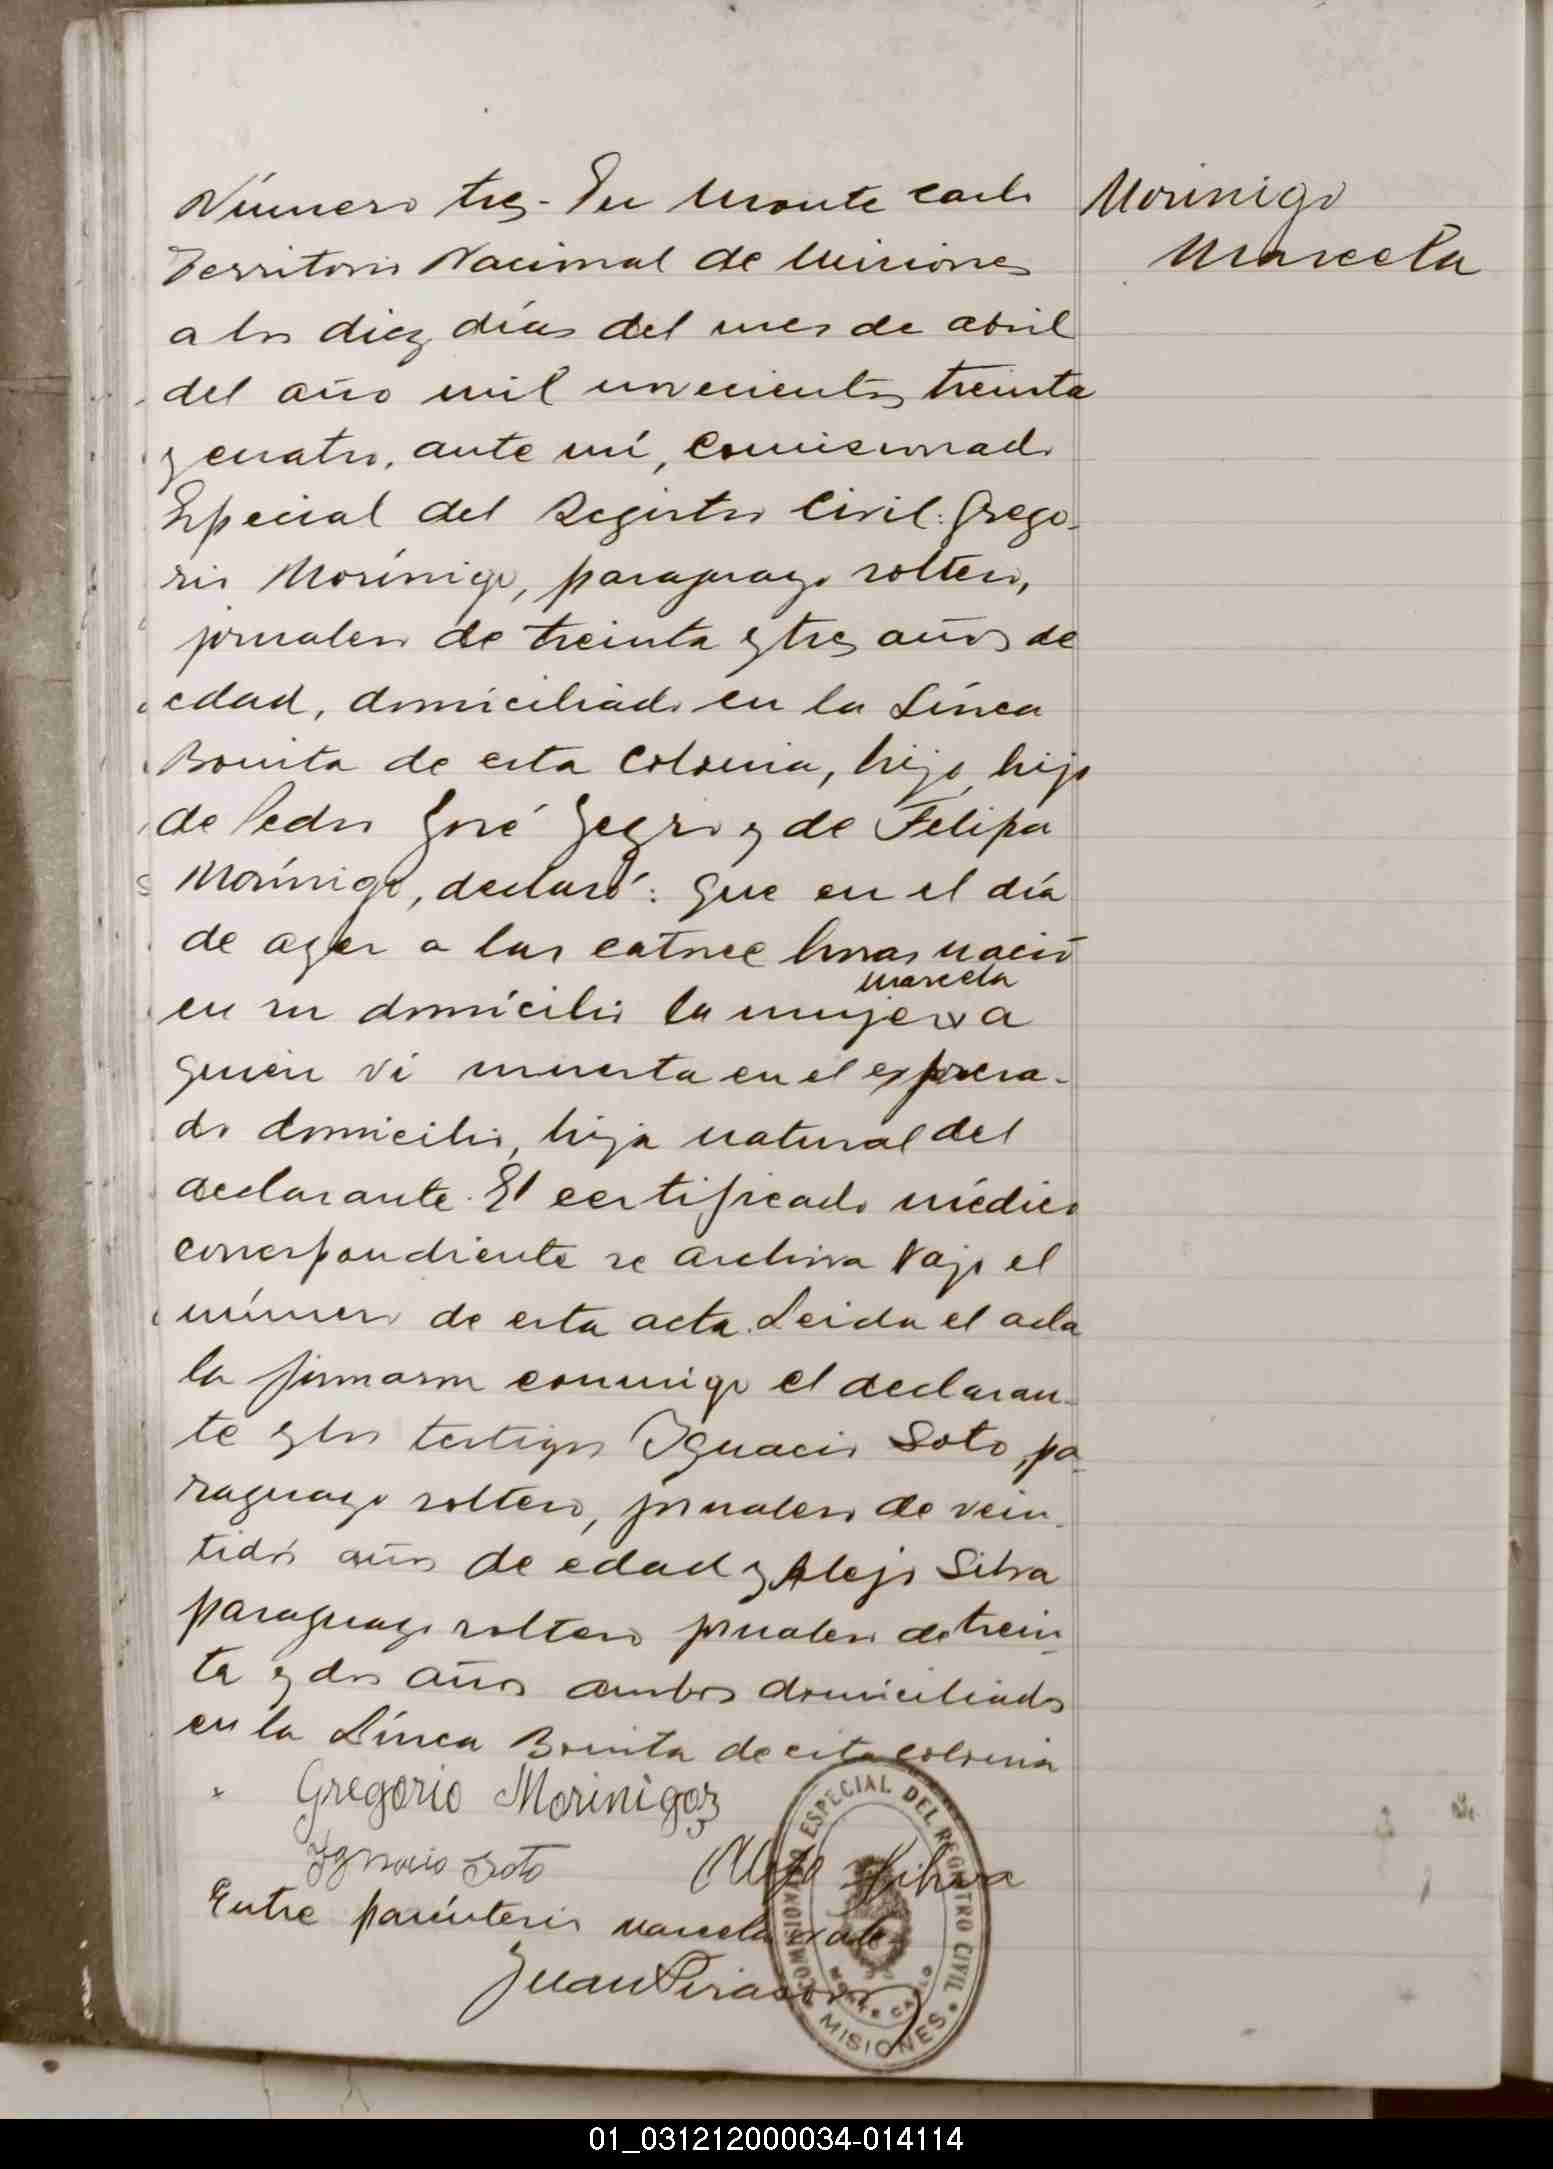 Número tres - En Monte Carlo
Territorio Nacional de Misiones
a los diez días del mes de abril
del año mil novecientos treinta
y cuatro, ante mí, Comisionado
Especial del Registro Civil: Grego-
rio Morínigo, paraguayo soltero,
jornalero de treinta y tres años de
edad, domiciliado en la Línea
Bonita de esta Colonia, hijo, hijo
de Pedro José y de Felipa
Morínigo, declaró: que en el día
de ayer a las catorce horas nació
Marcela
en su domicilio la mujer x a
quien vi muerta en el expresa-
do domicilio, hija natural del
declarante. El certificado médico
correspondiente se archiva bajo el
número de esta acta. Leida el acta
la firmaron conmigo el declaran-
te y los testigos Ignacio Soto, pa-
raguayo soltero, jornalero de vein-
tidós años de edad y Alejo Silva
paraguayo soltero jornalero de trein-
ta y dos años ambos domiciliados
en la Línea Bonita de esta colonia
Gregorio Morinigo
Ygnacio Soto Alejo Silva
Entre paréntesis marcela vale
Juan
Morinigo
Marcela
COMISIONADO ESPECIAL DEL REGISTRO CIVIL
MONTE CARLO
MISIONES
01_031212000034-014114